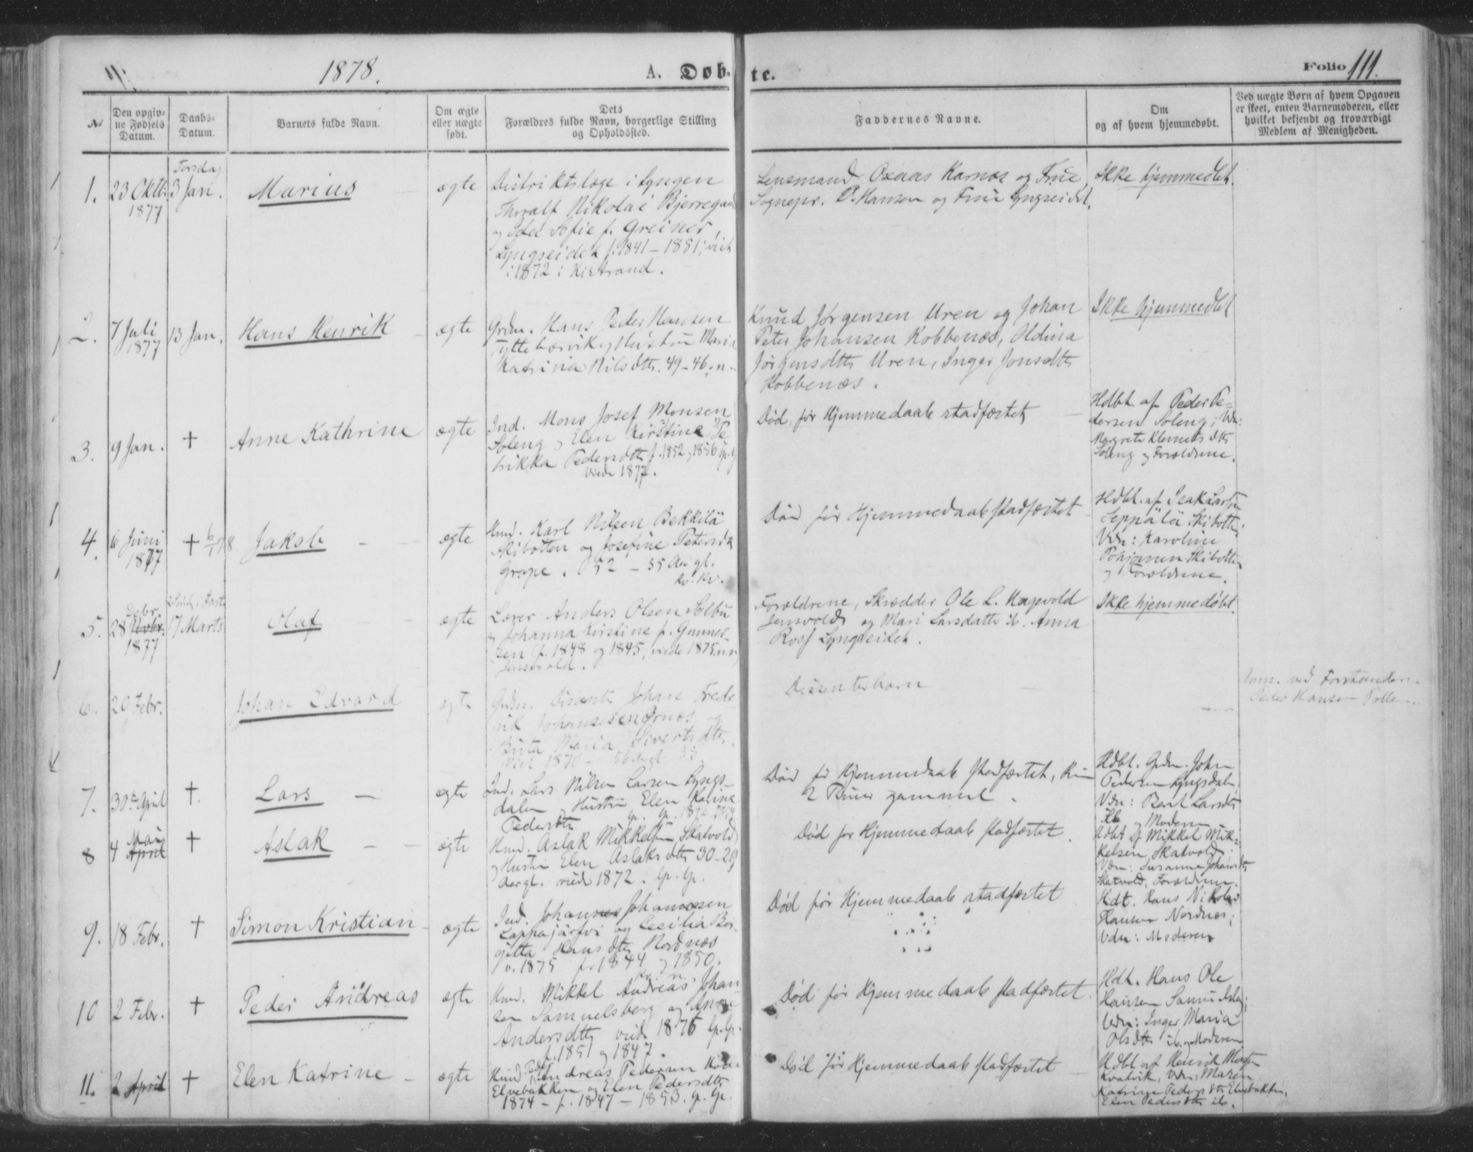 1878.
A. Døb-
te.
Folio 111.
No
Den opgiv-
ne Fødsels
Datum.
Daabs-
Datum.
Barnets fulde Navn.
Om ægte
eller uægte
født.
Dets
Forældres fulde Navn, borgerlige Stilling
og Opholdssted.
Faddernes Navne.
Om
og af hvem hjemmedøbt.
Ved uægte Børn af hvem Opgaven
er skeet, enten Barnemoderen, eller
hvilket bekjendt og troværdigt
Medlem af Menigheden.
1.
23 Oktb.
1877
Torsdag
3 Jan.
Marius
ægte
Distriktslæge i Lyngen
Thoralf Nikolai Bjerregaard
Sofie f. Greiner
Lyngseidet f. 1841 - 1851; viet
i 1872 i Kistrand.
Lensmand Karnos og Frue,
Sognepr. Hanson og Frue Lyngseidet.
Ikke hjemmedøbt.
2.
7 Juli
1877
13 Jan.
Hans Henrik
ægte
Grdm. Hans Peder Hansen
Hustru Maria
Katrina Nilsdtr. 49 - 46.
Knud Jørgensen Uren og Johan
Peter Johansen Kobbenæs, Hdina
Jørgensdtr Uren, Inger Jonsdtr
Kobbenæs.
Ikke hjemmedøbt
3.
9 Jan.
+
Anne Kathrine
ægte
Ind. Mons Josef Monsen
Soleng og Elen Kirstine
Pedersdtr f. 1852, 1856
viede 1877.
Død før Hjemmedaab stadfæstet
Hdbt. af Peder Pe-
dersen Soleng; Vdn:
Margrete Klemetsdtr
Soleng og Forældrene.
4.
6 Juni
1877
+
Jakob
ægte
Karl Nilsen Bekkilä
Skibotten og Josefine Petersdtr
Grape. 32 - 35 Aar gl.
Kv. Kv.
Død før Hjemmedaab stadfæstet
Hdbt. af Isak Larsen
Seppälä Skibotten.
Vdn: Karoline
Pohjanen Skibotten
og Forældrene.
5.
28
1877
17 Marts
Olaf
ægte
Lærer Anders Olsen Solbu
og Johanna Kirstine f. Gunner-
sen f. 1848 og 1845, viede 1875
Forældrene, Skrædder Ole L. Hagevold
og Mari Larsdatter ib. Anna
Ross Lyngseidet.
Ikke hjemmedøbt.
6.
20 Febr.
Johan Edvard
ægte
Johan Frede-
rik Johannesen
Maria Sivertsdtr.
Dissenterbarn
Anm. ved Forstander
Peder Hansen
7.
30te April
+
Lars
ægte
Ind. Lars Nilsen Larsen Lyngs-
dalen Hustru Elen Karine
Pedersdtr
Død før Hjemmedaab stadfæstet, kun
2 Timer gammel.
Hdbt. Grdm. John
Pedersen Lyngsdalen
Vdn: Berit Larsdtr
ib. og Moderen
8
4 Mai
April
+
Aslak
ægte
Aslak Mikkelsen Skatvold
og Hustru Elen Aslaksdtr 30 - 29
Aar gl. viede 1872. Lp. Lp.
Død før Hjemmedaab stadfæstet.
Hdbt af Mikkel Mik-
kelsen Skatvold
Vdn: Susanne Johansdtr
Skatvold, Forældrene.
9.
18 Febr.
+
Simon Kristian
ægte
Ind. Johannes Johannesen
Lappajärvi og Cecilia Bir-
gitta Hansdtr Nordnæs
v. 1875 f. 1844 og 1850.
Død før Hjemmedaab stadfæstet
Hdt. Hans Nikolai
Hansen Nordnæs;
Vdn: Moderen
10
2 Febr.
+
Peder Andreas
ægte
Mikkel Andreas Johan-
sen Samuelsberg og Anne
Andersdtr viede 1875 Lp. Lp.
f. 1851 og 1847.
Død før Hjemmedaab stadfæstet.
Hdt. Hans Ole
Hansen Samuelsbg;
Vdn: Inger Maria
Olsdtr ib. og Moderen
11.
2 April
+
Elen Katrine
ægte
Andreas Pedersen
Elvebakken og Elen Pedersdtr
1874 - f. 1847 - 1853. Lp. Lp.
Død før Hjemmedaab stadfæstet
Hdbt af Henrik
Kvalvik, Vdn: Maren
Katrine Pedersdtr Elvebakken,
Elen Pedersdtr ib.